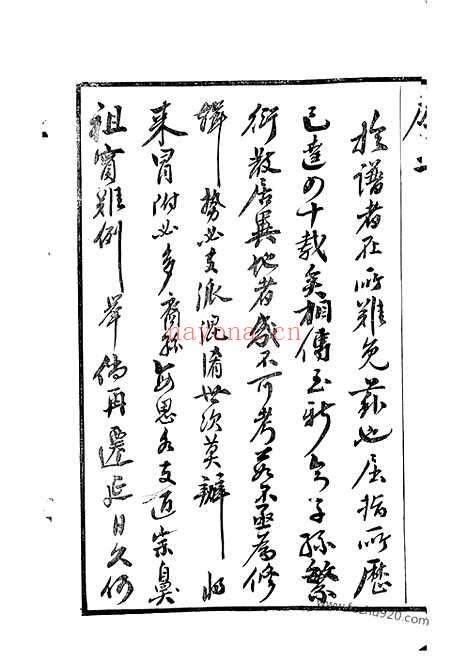 譜者在所難免茲也屈指所歷
已達四十載矣相傳至今子孫繁
衍散居異地者咸不可考若不亟為修
輯勢必支派混淆世次莫辨將
来冒附必多裔孫思支宗鼻
祖實難例舉倘再遷延日久何
nayona.cn